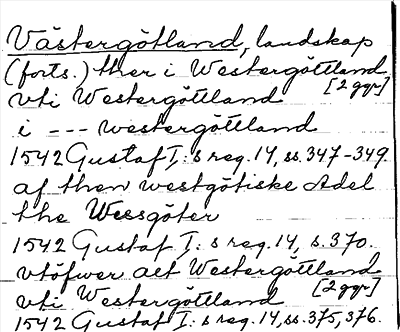 Västergötland, landskap
(forts.) ther i Westergöttland
vti Westergöttland [2 ggr]
i --- westergöttland
1542 Gustaf I:s reg. 14, ss. 347-349.
af then westgötiske Adel
the Wessgöter
1542 Gustaf I:s reg. 14, s. 370.
vtöfwer alt Westergöttland
vti Westergöttland [2 ggr]
1542 Gustaf I:s reg. 14, ss. 375, 376.